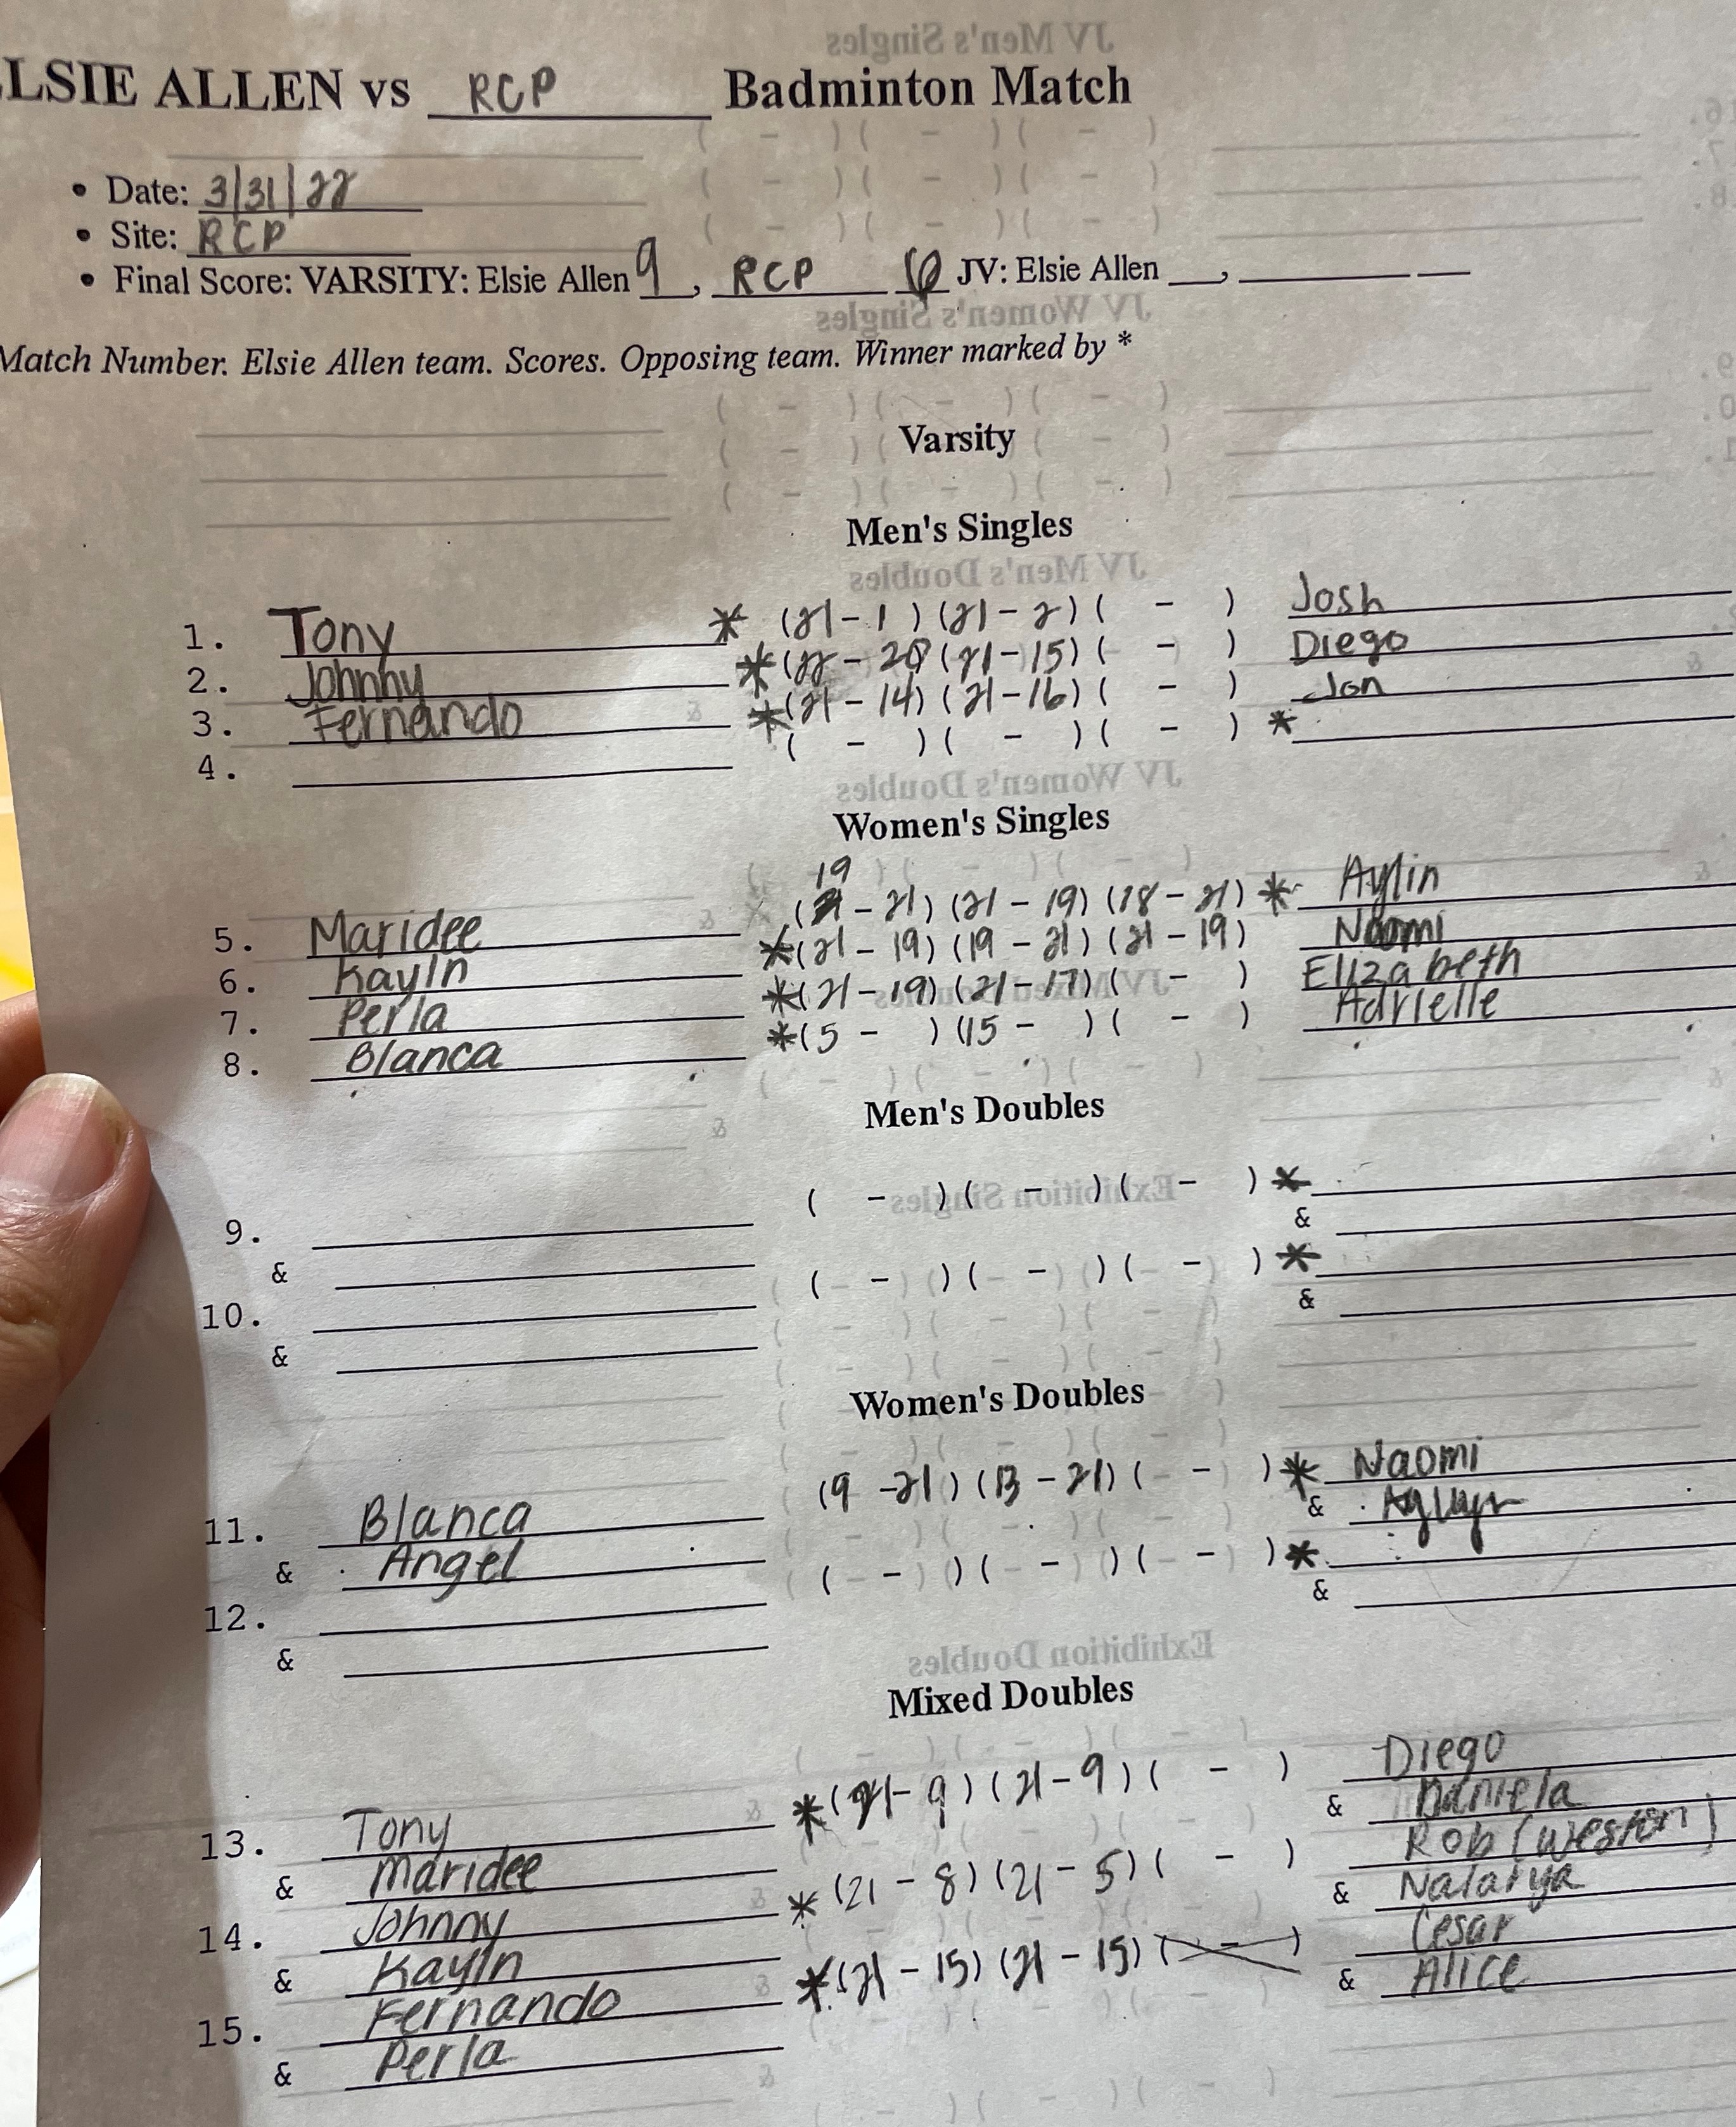 LSIE ALLEN vs RCP Badminton Match
• Date: 3/31/22
• Site: RCP
• Final Score: VARSITY: Elsie Allen 9, RCP 6 JV: Elsie Allen ___, ___ ___
Match Number. Elsie Allen team. Scores. Opposing team. Winner marked by *
Varsity
Men's Singles
1. Tony * (21 - 1) (21 - 2) ( - ) Josh
2. Johnny * (22 - 20) (21 - 15) ( - ) Diego
3. Fernando * (21 - 14) (21 - 16) ( - ) Jon
4. ( - ) ( - ) ( - ) *
Women's Singles
19
5. Maridee ( - 21) (21 - 19) (18 - 21) * Aylin
6. Kayln * (21 - 19) (19 - 21) (21 - 19) Naomi
7. Perla * (21 - 19) (21 - 17) ( - ) Elizabeth
8. Blanca * (5 - ) (15 - ) ( - ) Adrielle
Men's Doubles
9. ( - ) ( - ) ( - ) *
& &
10. ( - ) ( - ) ( - ) *
& &
Women's Doubles
11. Blanca (9 - 21) (13 - 21) ( - ) * Naomi
& Angel &
12. ( - ) ( - ) ( - ) *
& &
Mixed Doubles
13. Tony * (21 - 9) (21 - 9) ( - ) Diego
& Maridee & Daniela
14. Johnny * (21 - 8) (21 - 5) ( - ) Rob (Weston)
& Kayln & Natalya
15. Fernando * (21 - 15) (21 - 15) ( - ) Cesar
& Perla & Alice